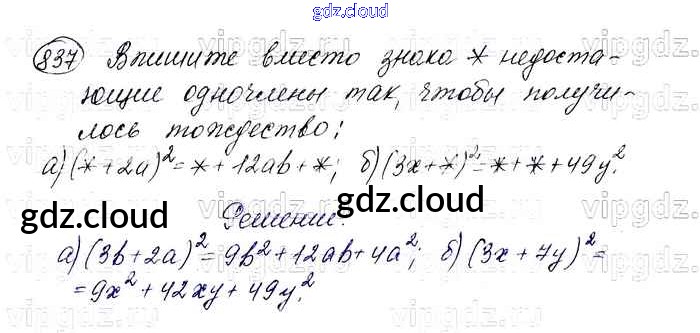 gdz.cloud
837 Впишите вместо знака * недоста-
ющие одночлены так, чтобы получи-
лось тождество:
а) (* + 2a)² = * + 12ab + *; б) (3x + *)² = * + * + 49y².
gdz.cloud Решение. gdz.cloud
а) (3b + 2a)² = 9b² + 12ab + 4a²; б) (3x + 7y)² =
= 9x² + 42xy + 49y².
vipgdz